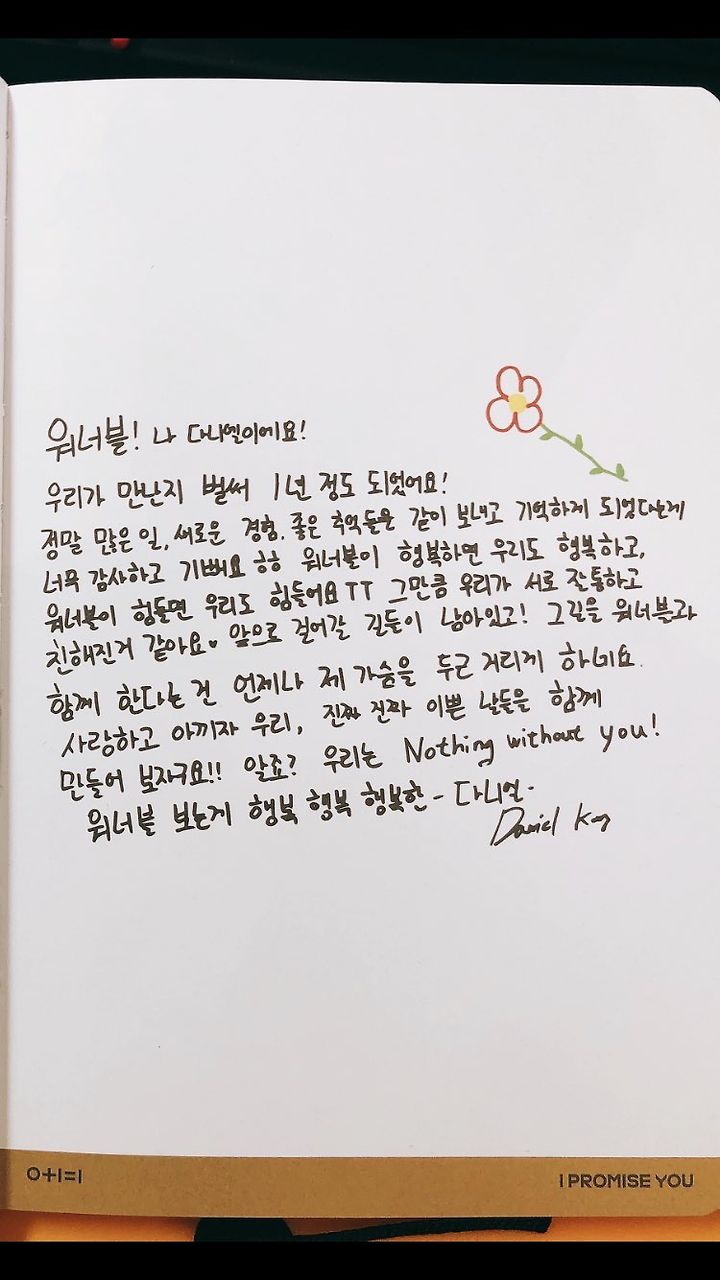 워너블! 나 다니엘이에요!
우리가 만난지 벌써 1년 정도 되었어요!
정말 많은 일, 새로운 경험. 좋은 추억들을 같이 보내고 기억하게 되었다는게
너무 감사하고 기뻐요 ㅎㅎ 워너블이 행복하면 우리도 행복하고,
워너블이 힘들면 우리도 힘들어요TT 그만큼 우리가 서로 잘통하고
친해진거 같아요. 앞으로 걸어갈 길들이 남아있고! 그길을 워너블과
함께 한다는건 언제나 제 가슴을 두근거리게 하네요.
사랑하고 아끼자 우리, 진짜 진짜 이쁜 날들을 함께
만들어 보자구요!! 알죠? 우리는 Nothing without you!
워너블 보는게 행복 행복 행복한 - 다니엘 -
Daniel Kang
0+1=1
I PROMISE YOU